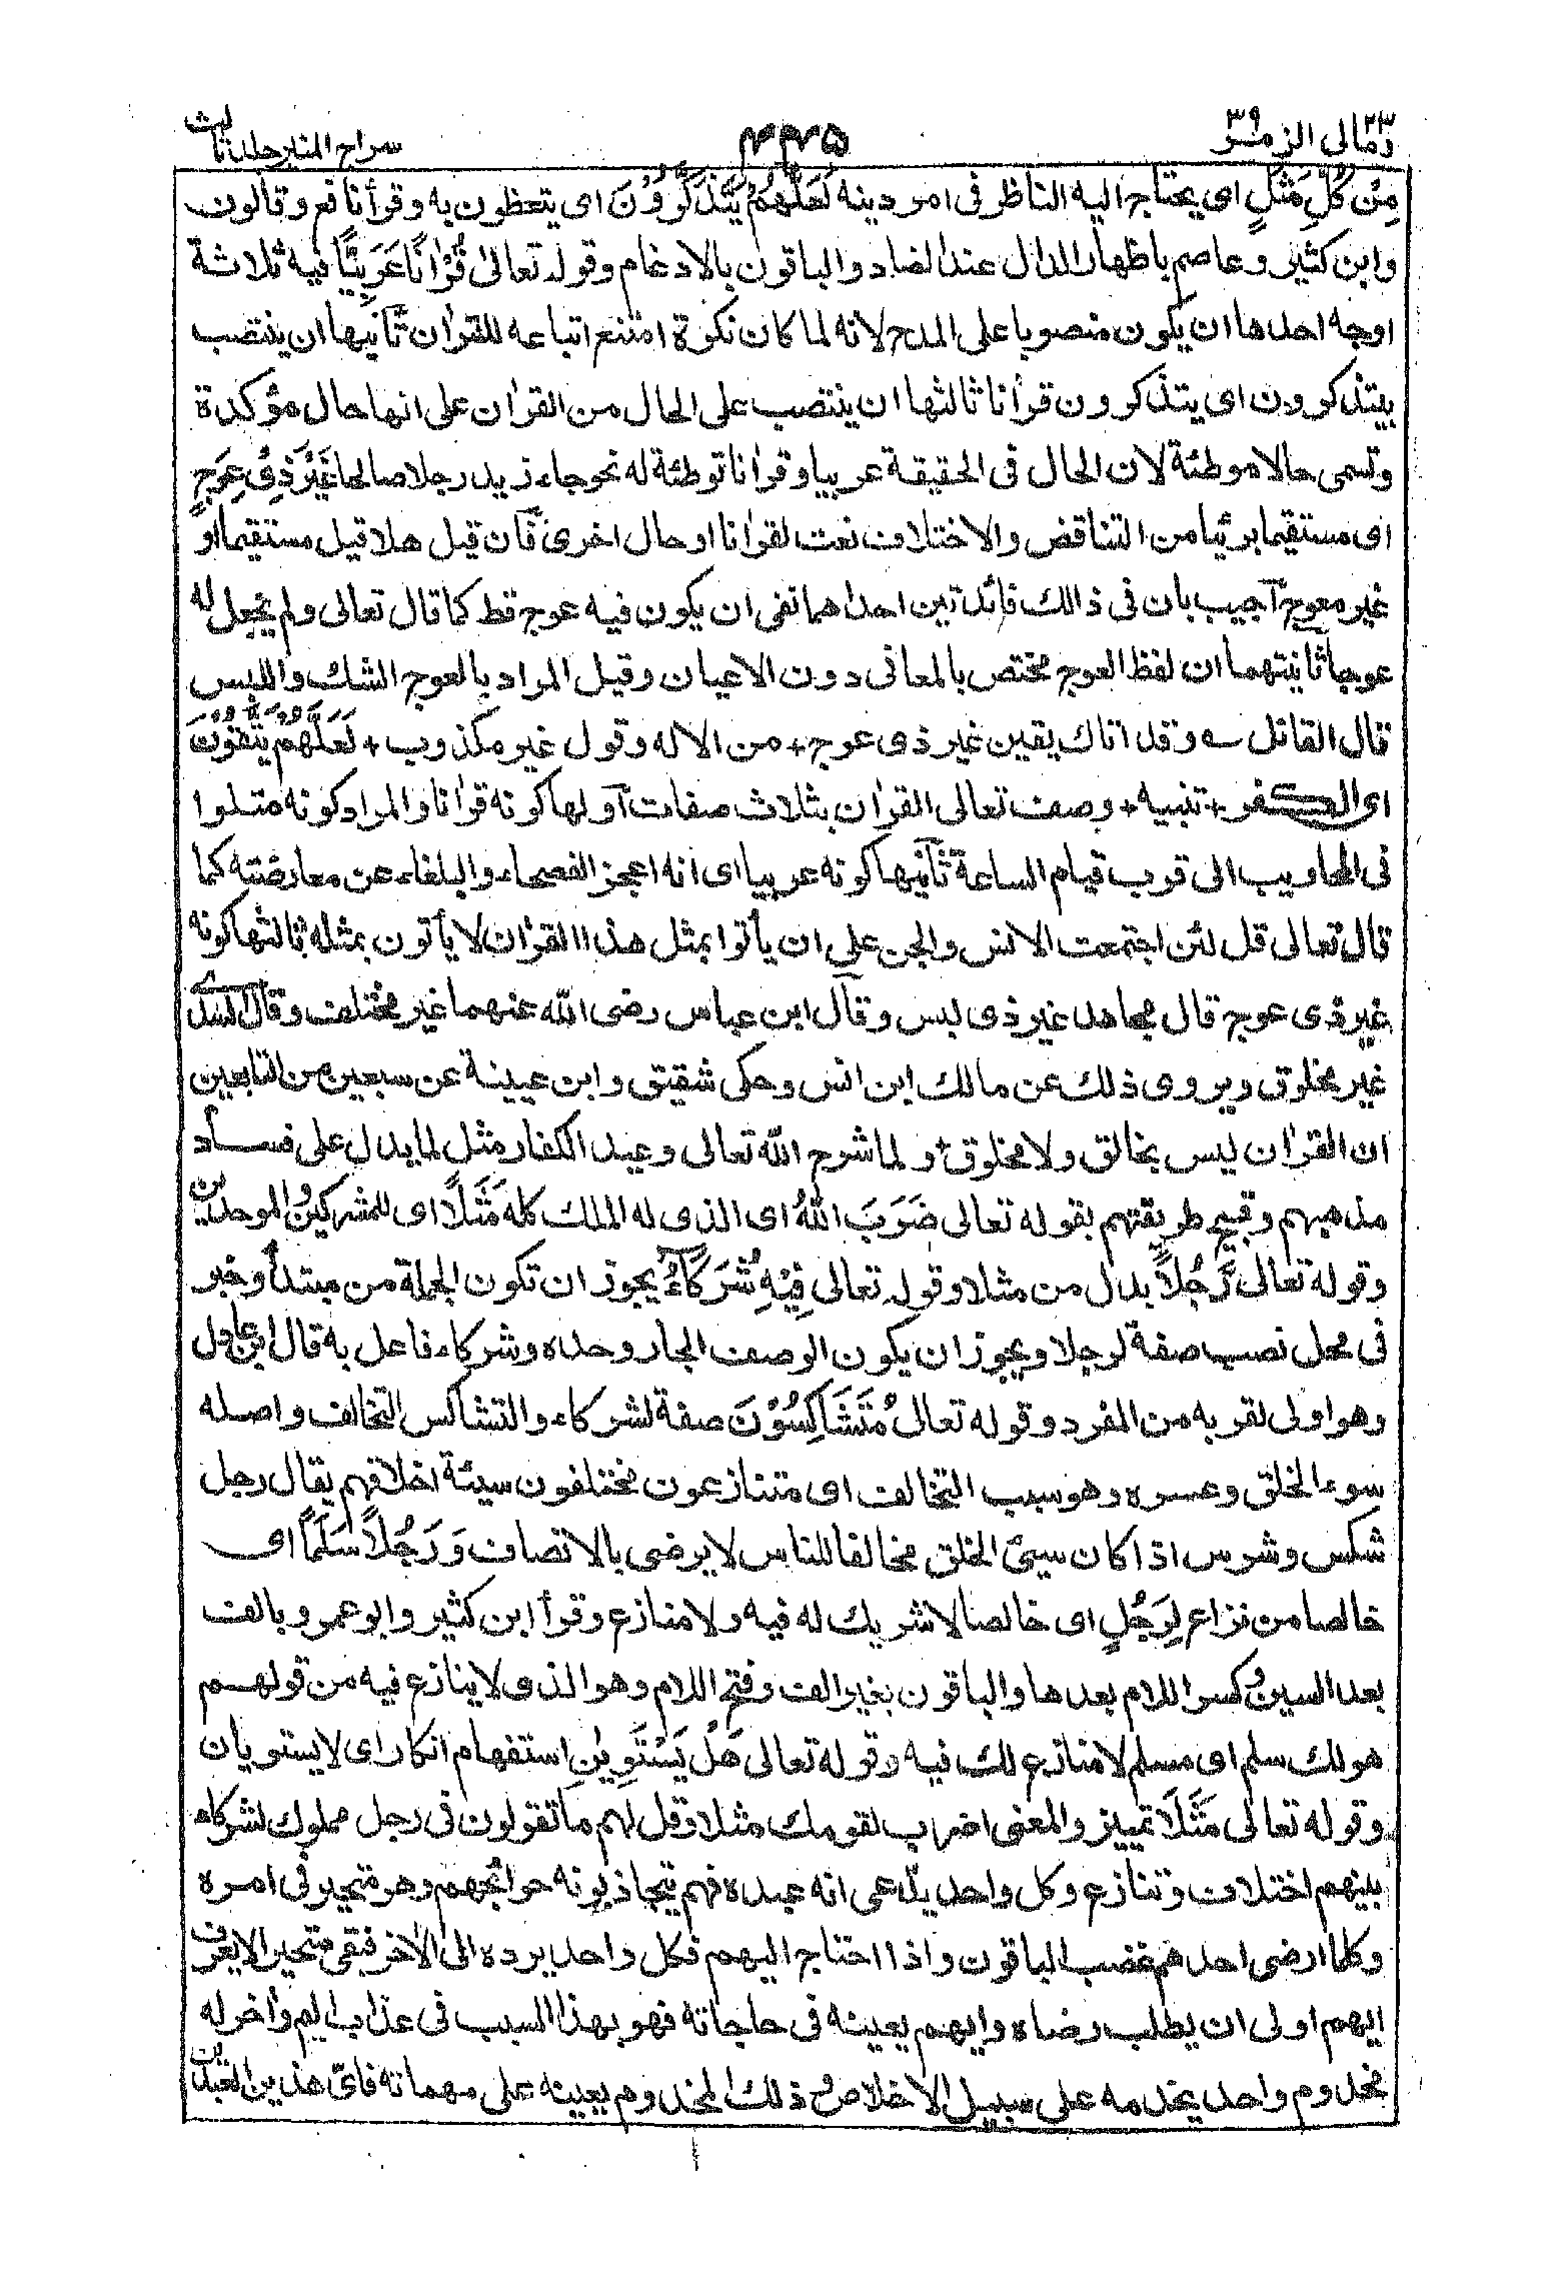 ومالى ٢٣ الزمر ٣٩
٤٤٥
سراج المنير جلد ثالث
مِنْ كُلِّ مَثَلٍ اى يحتاج اليه الناظر فى امر دينه لَعَلَّهُمْ يَتَذَكَّرُوْنَ اى يتعظون به وقرأ نافع وقالون
وابن كثير وعاصم باظهار الدال عند الضاد والباقون بالادغام وقوله تعالىٰ قُرْاٰنًا عَرَبِيًّا فيه ثلاثة
اوجه احدها ان يكون منصوبا على المدح لانه لما كان نكرة امتنع اتباعه للقراٰن ثانيها ان ينتصب
بيتذكرون اى يتذكرون قرأنا ثالثها ان ينتصب على الحال من القراٰن على انها حال مؤكدة
وتسمى حالا موطئة لان الحال فى الحقيقة عربيا وقراٰنا توطئة له نحو جاء زيد رجلا صالحا غَيْرَ ذِىْ عِوَجٍ
اى مستقيما بريئا من التناقض والاختلاف نعت لقراٰنا او حال اخرى فان قيل هلا قيل مستقيما او
غير معوج اجيب بان فى ذالك فائدتين احداهما نفى ان يكون فيه عوج قط كما قال تعالى ولم يجعل له
عوجا ثانيتهما ان لفظ العوج مختص بالمعانى دون الاعيان وقيل المراد بالعوج الشك واللبس
قال القائل ؎ وقد اتاك يقين غير ذى عوج + من الاله وقول غير مكذوب + لَعَلَّهُمْ يَتَّقُوْنَ
اى الكفر + تنبيه + وصف تعالى القراٰن بثلاث صفات اولها كونه قراٰنا والمراد كونه متلوا
فى المحاريب الى قرب قيام الساعة ثانيها كونه عربيا اى انه اعجز الفصحاء والبلغاء عن معارضته كما
قال تعالى قل لئن اجتمعت الانس والجن على ان يأتوا بمثل هذا القراٰن لا يأتون بمثله ثالثها كونه
غير ذى عوج قال مجاهد غير ذى لبس وقال ابن عباس رضى الله عنهما غير مختلف وقال السدى
غير مخلوق ويروى ذلك عن مالك ابن انس وحكى شقيق وابن عيينة عن سبعين من التابعين
ان القراٰن ليس بخالق ولا مخلوق و لما شرح الله تعالى وعيد الكفار مثل لما يدل على فساد
مذهبهم وقبيح طريقتهم بقوله تعالى ضَرَبَ اللّٰهُ اى الذى له الملك كله مَثَلًا اى للمشركين والموحدين
وقوله تعالى رَّجُلًا بدل من مثلا وقوله تعالى فِيْهِ شُرَكَآءُ يجوز ان تكون الجملة من مبتدأ وخبر
فى محل نصب صفة لرجلا ويجوز ان يكون الوصف الجار وحده وشركاء فاعل به قال ابن عادل
وهو اولى لقربه من المفرد وقوله تعالى مُتَشَاكِسُوْنَ صفة لشركاء والتشاكس التخالف واصله
سوء الخلق وعسره وهو سبب التخالف اى متنازعون مختلفون سيئة اخلاقهم يقال رجل
شكس وشرس اذا كان سيئ الخلق مخالفا للناس لا يرضى بالانصاف وَرَجُلًا سَلَمًا اى
خالصا من نزاع لِرَجُلٍ اى خالصا لا شريك له فيه ولا منازع وقرأ ابن كثير وابو عمرو بالف
بعد السين وكسر اللام بعدها والباقون بغير الف وفتح اللام وهو الذى لا ينازع فيه من قولهم
هو لك سلم اى مسلم لا منازع لك فيه وقوله تعالى هَلْ يَسْتَوِيٰنِ استفهام انكار اى لا يستويان
وقوله تعالى مَثَلًا تمييز والمعنى اضراب لقومك مثلا وقل لهم ما تقولون فى رجل مملوك لشركاء
بينهم اختلاف وتنازع وكل واحد يدعى انه عبده فهم يتجاذبونه حوائجهم وهو متحير فى امره
وكلما ارضى احدهم غضب الباقون واذا احتاج اليهم فكل واحد يرده الى الاٰخر فبقى متحيرا لا يعرف
ايهم اولى ان يطلب رضاه وايهم يعينه فى حاجاته فهو بهذا السبب فى عذاب اليم واٰخر له
مخدوم واحد يخدمه على سبيل الاخلاص و ذلك المخدوم يعينه على مهماته فاىّ هذين العبدين